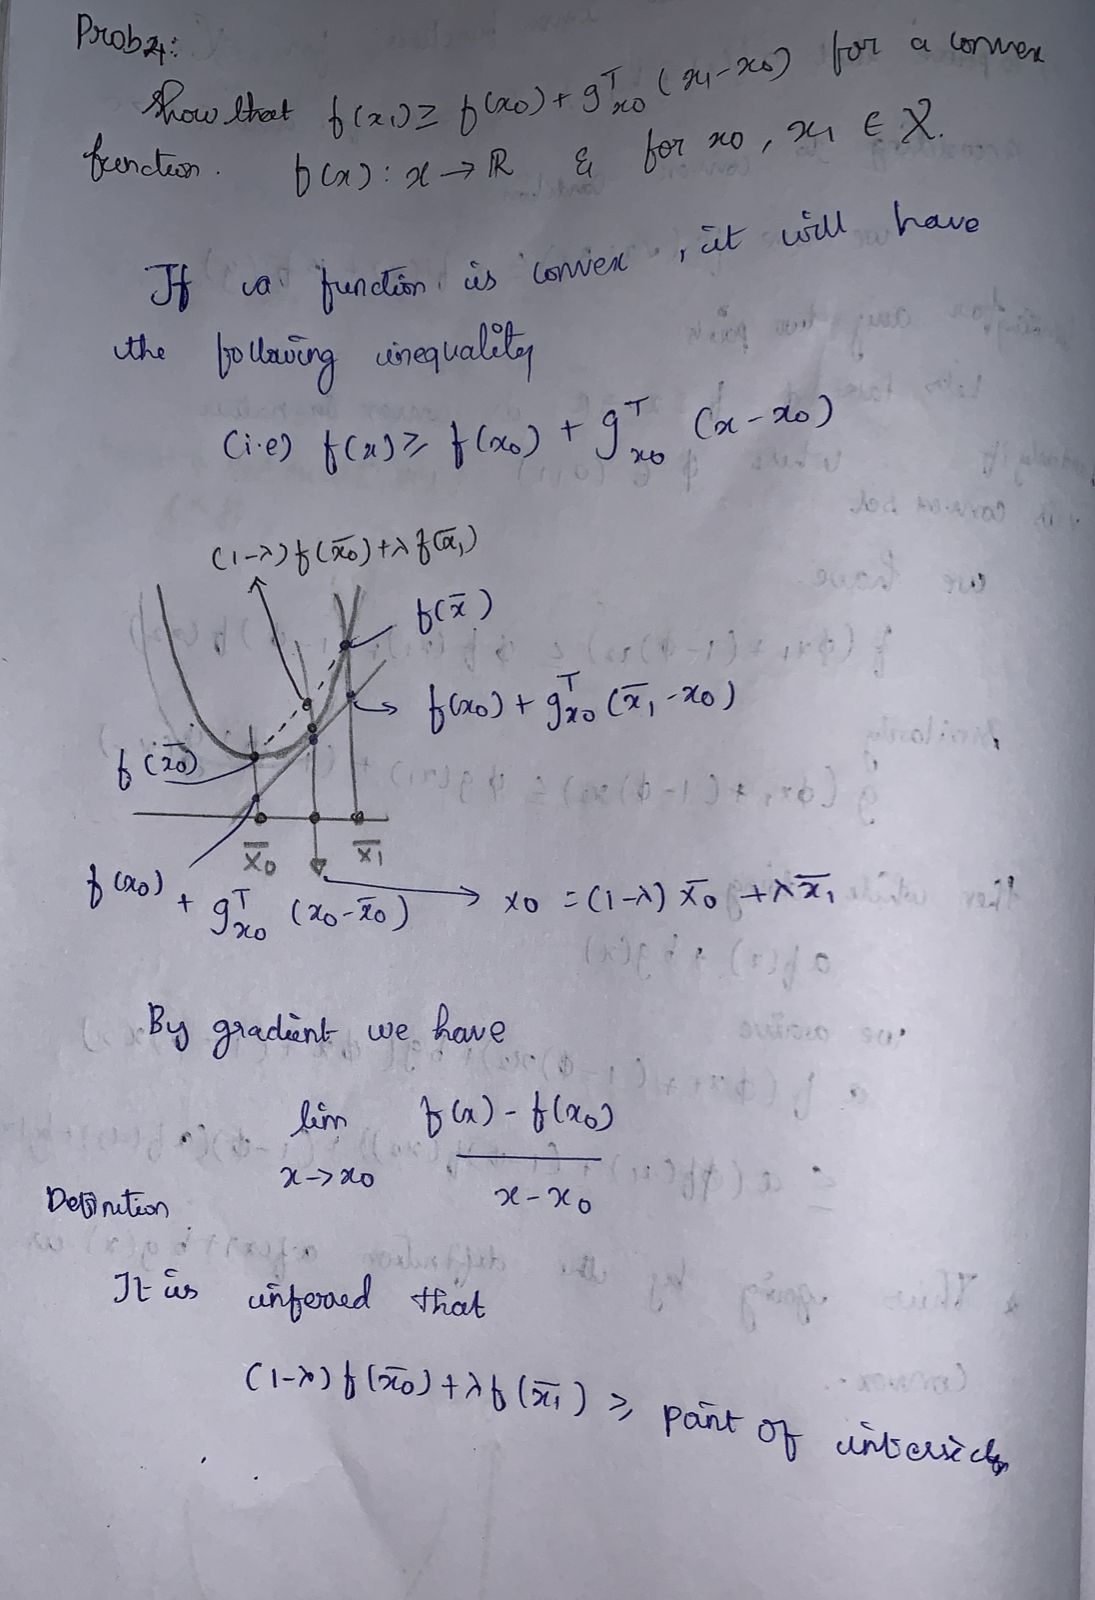 Prob 4:
Show that f(x₁) ≥ f(x₀) + gᵀx₀ (x₁-x₀) for a convex
function. f(x) : x → ℝ & for x₀, x₁ ∈ X.
If a function is convex, it will have
the following inequality
(i.e) f(x) ≥ f(x₀) + gᵀx₀ (x-x₀)
(1-λ) f(x̄₀) + λ f(x̄₁)
f(x̄)
f(x₀) + gᵀx₀ (x̄₁-x₀)
f(x̄₀)
x̄₀ x̄₁
f(x₀) + gᵀx₀ (x₀-x̄₀) → x₀ = (1-λ) x̄₀ + λx̄₁
By gradient we have
lim f(x) - f(x₀)
x→x₀ x-x₀
Definition
It is infered that
(1-λ) f(x̄₀) + λf(x̄₁) ≥ part of